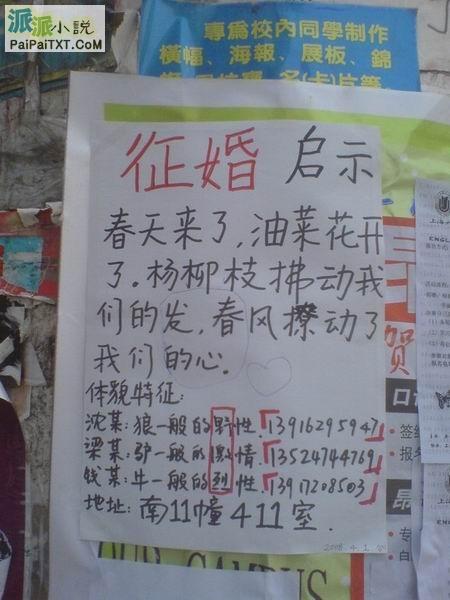 派派小说
PaiPaiTXT.Com
專為校內同學制作
橫幅、海報、展板、錦
征婚启示
春天来了,油菜花开
了.杨柳枝拂动我
们的发,春风撩动了
我们的心.
体貌特征:
沈某:狼一般的野性.「13916295947」
梁某:驴一般的激情.「13524744769」
钱某:牛一般的烈性.「13917208503」
地址:南11幢411室.
2008.4.1
贺
OUR CAMPUS
ENGL